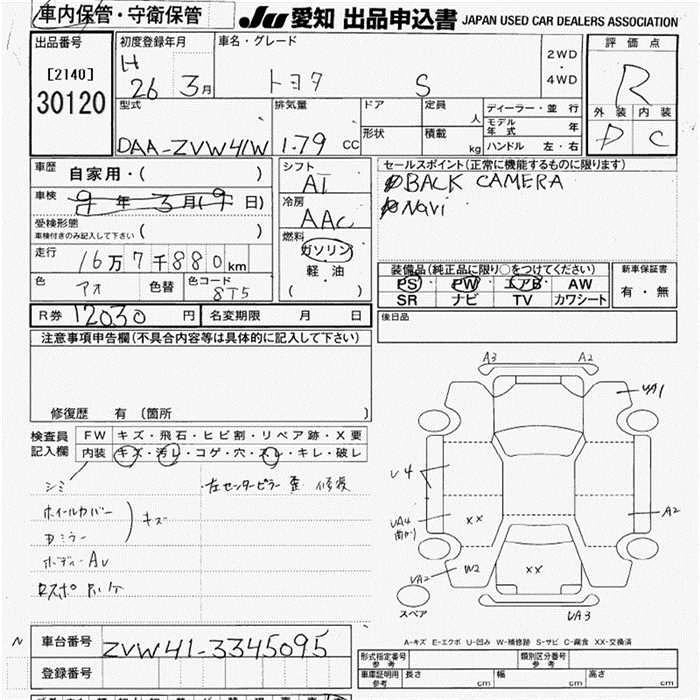 車内保管・守衛保管
JU 愛知 出品申込書 JAPAN USED CAR DEALERS ASSOCIATION
出品番号
[2140]
30120
初度登録年月
H
26 3月
車名・グレード
トヨタ S
2WD
・
4WD
評価点
R
外装 内装
D C
型式
DAA-ZVW41W
排気量
1.79 CC
ドア
定員
人
形状
積載
kg
ディーラー・並行
モデル年式 年
ハンドル 左・右
車歴
自家用・( )
車検
9年 3月(9日)
受検形態
車検付きのみ記入して下さい ( )
走行
16万7千880km
色
アオ
色替
色コード
8T5
シフト
AT
冷房
AAC
燃料
ガソリン
軽油
( )
セールスポイント(正常に機能するものに限ります)
BACK CAMERA
Navi
装備品(純正品に限り○をつけてください)
PS PW エアB AW
SR ナビ TV カワシート
新車保証書
有・無
R券 12030 円
名変期限 月 日
後日品
注意事項申告欄(不具合内容等は具体的に記入して下さい)
修復歴 有 〔箇所 〕
検査員
記入欄
FW キズ・飛石・ヒビ割・リペア跡・X要
内装 キズ・汚レ・コゲ・穴・スレ・キレ・破レ
シミ
左センターピラー 歪 修復
ホイールカバー
Dミラー
キズ
ボディーAU
A3 A2
UA1
U4
UA4
XX
A2
UA2
W2
XX
UA3
スペア
A-キズ E-エクボ U-凹み W-補修跡 S-サビ C-腐食 XX-交換済
N
車台番号
ZVW41-3345095
登録番号
形式指定番号
参考
類別区分番号
参考
車庫証明用
参考
長さ cm
幅 cm
高さ cm